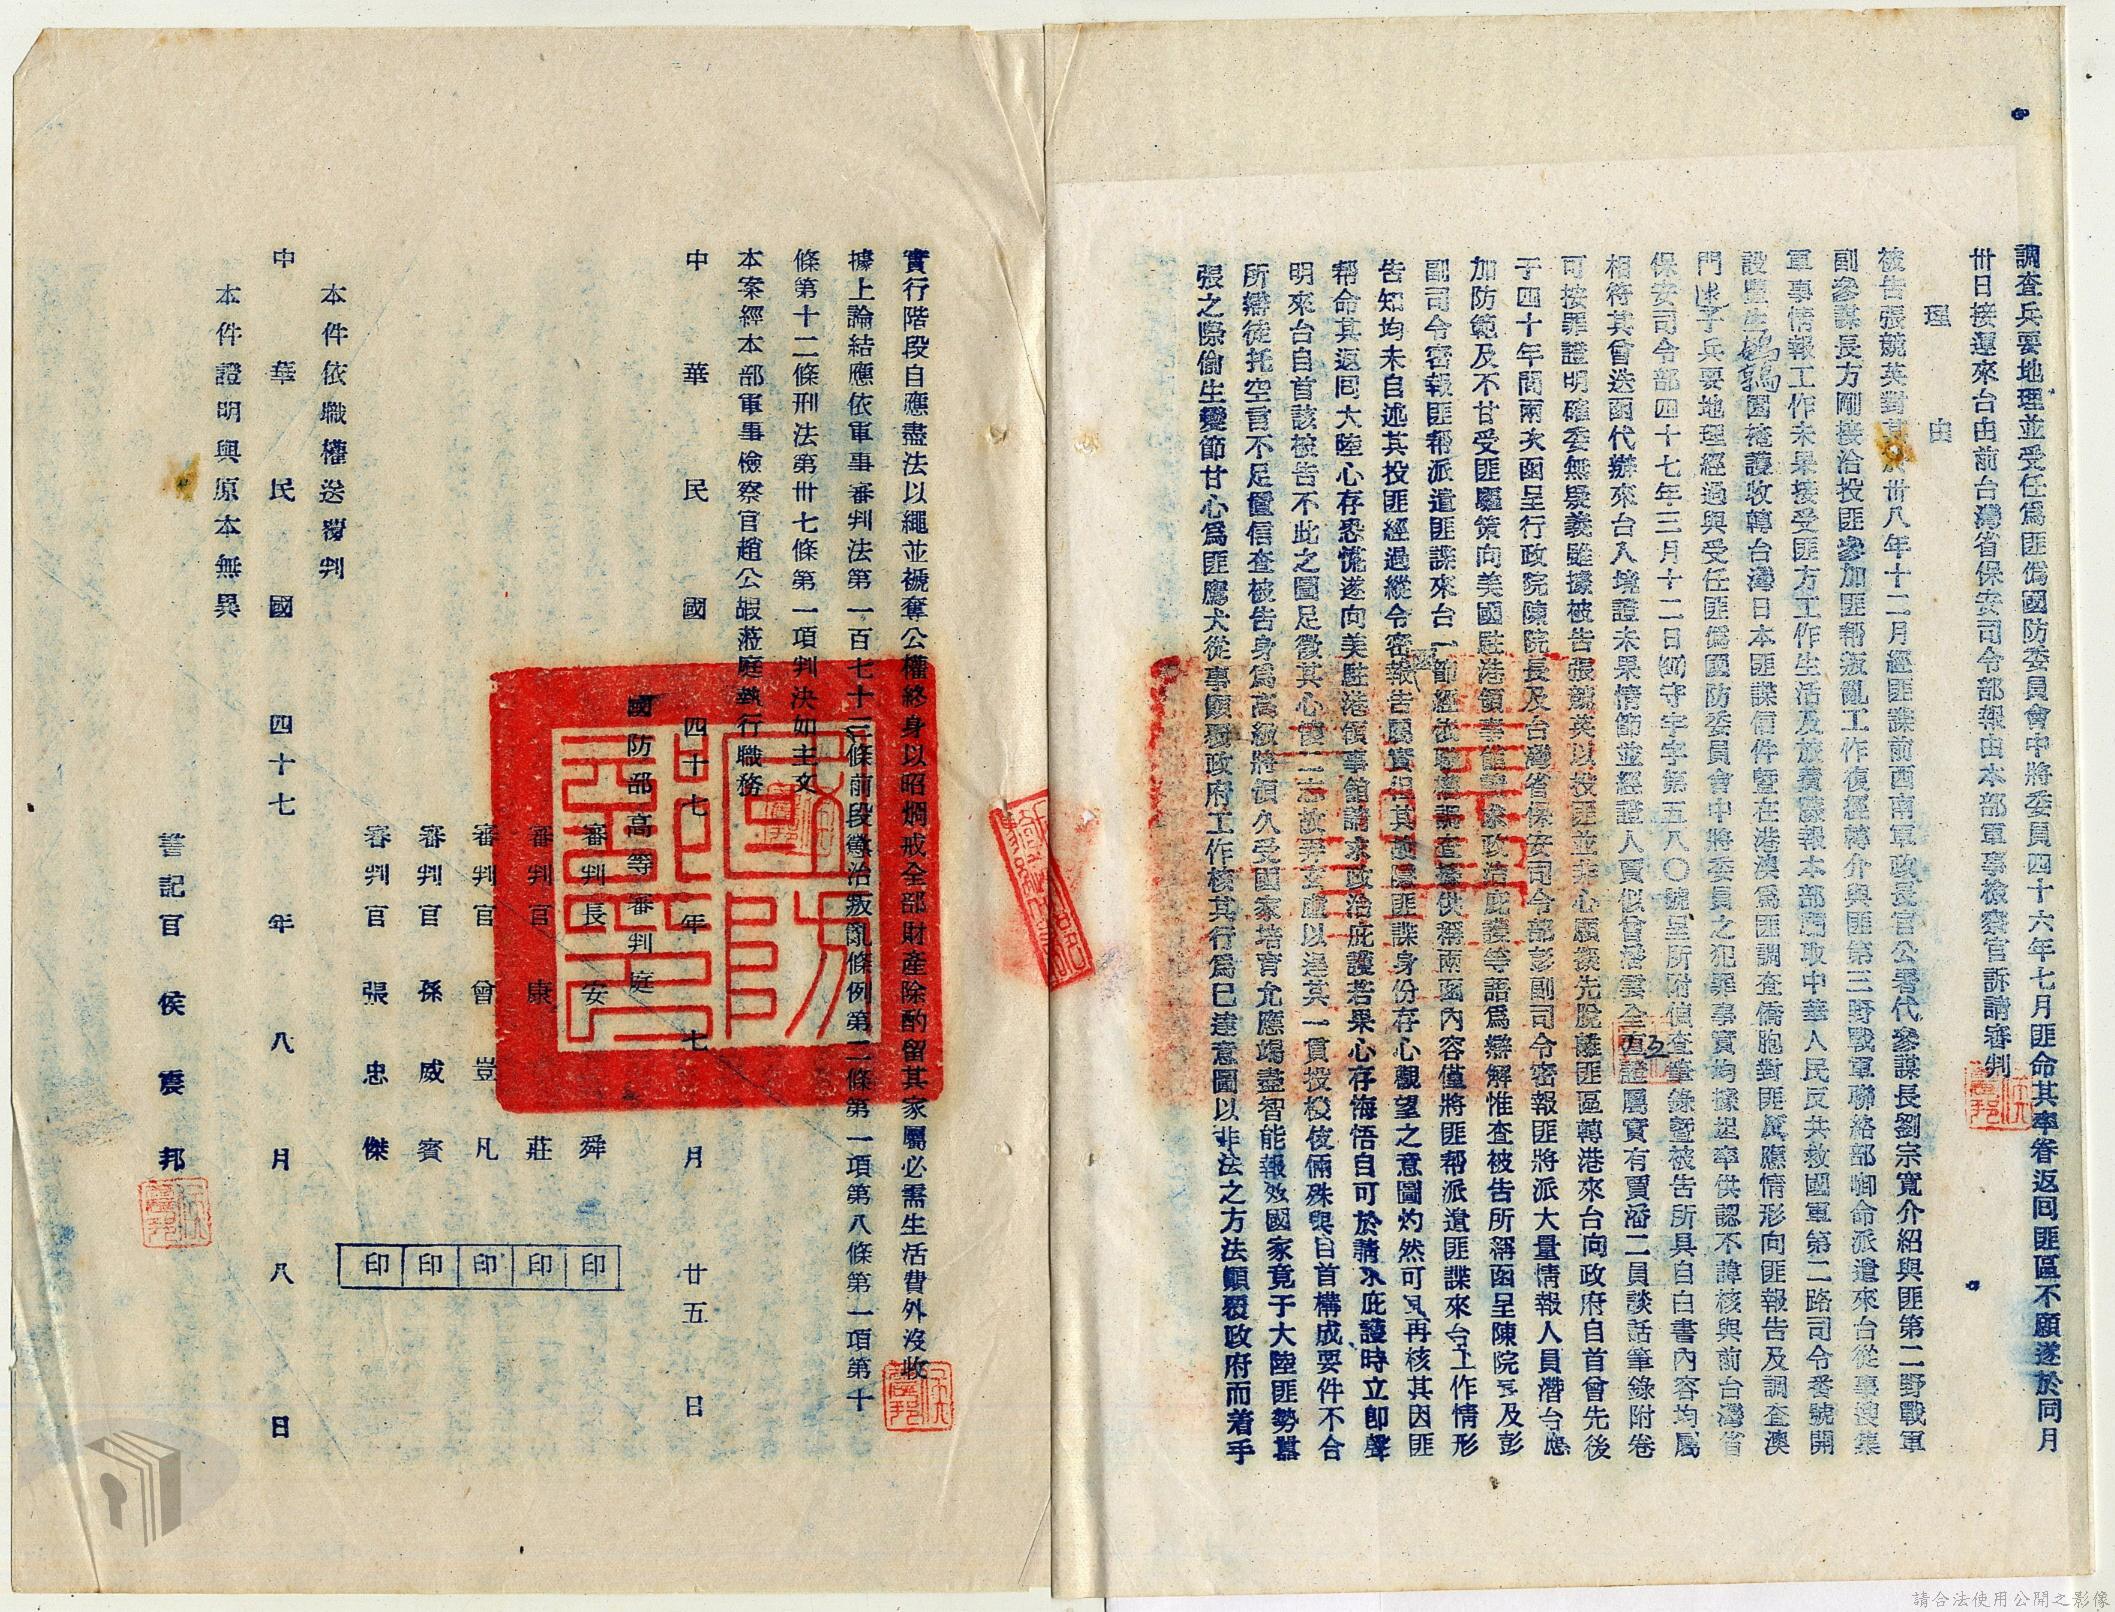 調查兵要地理並受任為匪偽國防委員會中將委員四十六年七月匪命其率眷返回匪區不願遂於同月
卅日接運來台由前台灣省保安司令部報由本部軍事檢察官訴請審判
理由
被告張競英對其於卅八年十二月經匪諜前西南軍政長官公署代參謀長劉宗寬介紹與匪第二野戰軍
副參謀長方剛接洽投匪參加匪幫叛亂工作復經轉介與匪第三野戰軍聯絡部啣命派遣來台從事搜集
軍事情報工作未果接受匪方工作生活及旅費謙報本部竊取中華人民反共救國軍第二路司令番號開
設豐生鵪鶉園掩護收轉台灣日本匪諜信件暨在港澳為匪調查僑胞對匪反應情形向匪報告及調查澳
門述子兵要地理經過與受任匪偽國防委員會中將委員之犯罪事實均據坦率供認不諱核與前台灣省
保安司令部四十七年三月十二日(47)守字字第五八〇號呈所附偵查筆錄暨被告所具自白書內容均屬
相符其曾送函代辦來台入境證未果情節並經證人賈似曾潘雲全直證屬實有賈潘二員談話筆錄附卷
可按罪證明確委無疑義雖據被告張競英以投匪並非心願擬先脫離匪區轉港來台向政府自首曾先後
于四十年間兩次函呈行政院陳院長及台灣省保安司令部彭副司令密報匪將派大量情報人員潛台應
加防範及不甘受匪驅策向美國駐港領事館請求政治庇護等語為辯解惟查被告所稱函呈陳院長及彭
副司令密報匪幫派遣匪諜來台一節經向聯繫調查據供稱兩函內容僅將匪幫派遣匪諜來台工作情形
告知均未自述其投匪經過縱令密報告屬實但其隱匿匪諜身份存心觀望之意圖灼然可見再核其因匪
幫命其返回大陸心存恐慌遂向美駐港領事館請求政治庇護若果心存悔悟自可於請求庇護時立即聲
明來台自首該被告不此之圖足徵其心懷二志故弄玄虛以逞其一貫投機伎倆殊與自首構成要件不合
所辯徒托空言不足置信查被告身為高級將領久受國家培育允應竭盡智能報效國家竟于大陸匪勢囂
張之際偷生變節甘心為匪鷹犬從事顛覆政府工作核其行為已達意圖以非法之方法顛覆政府而著手
實行階段自應盡法以繩並褫奪公權終身以昭烱戒全部財產除酌留其家屬必需生活費外沒收
據上論結應依軍事審判法第一百七十三條前段懲治叛亂條例第二條第一項第八條第一項第十
條第十二條刑法第卅七條第一項判決如主文
本案經本部軍事檢察官趙公嘏蒞庭執行職務
中華民國四十七年七月廿五日
國防部高等審判庭
審判長安舜 印
審判官康莊 印
審判官曾豈凡 印
審判官孫威賓 印
審判官張忠傑 印
本件依職權送覆判
中華民國四十七年八月八日
本件證明與原本無異
書記官侯震邦
請合法使用公開之影像